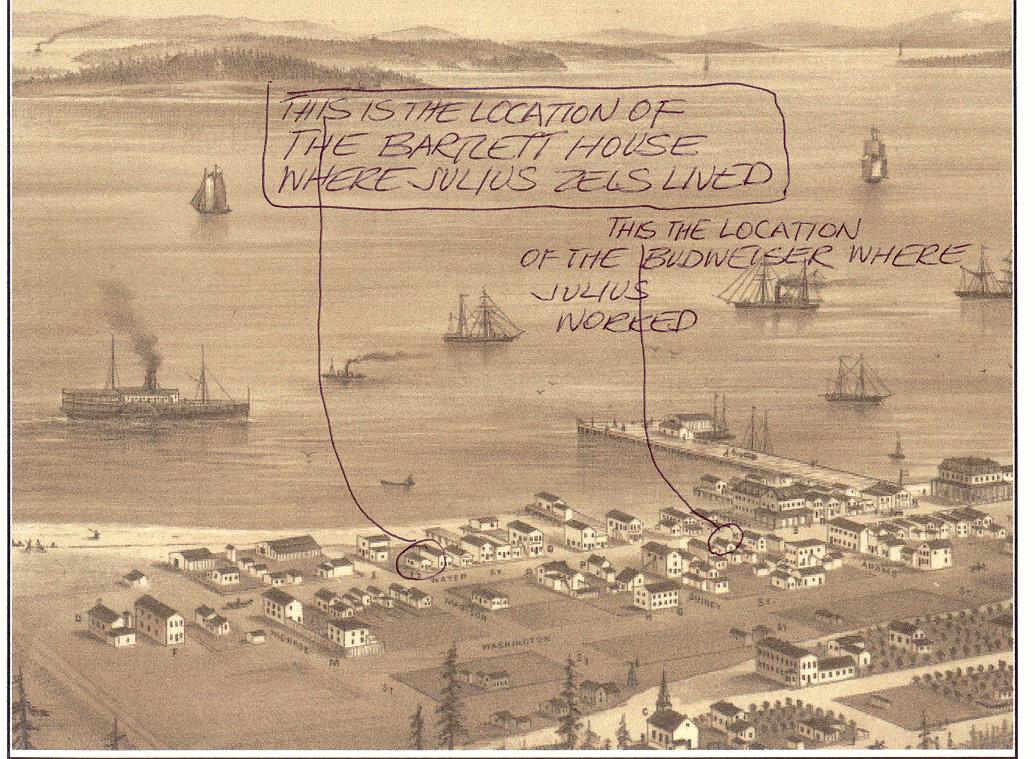 THIS IS THE LOCATION OF
THE BARTLETT HOUSE
WHERE JULIUS ZELS LIVED
THIS THE LOCATION
OF THE BUDWEISER WHERE
JULIUS
WORKED
WATER ST.
ADAMS
QUINCY ST.
MADISON
MONROE
WASHINGTON
ST
ST
ST
ST
F
M
H
G
C